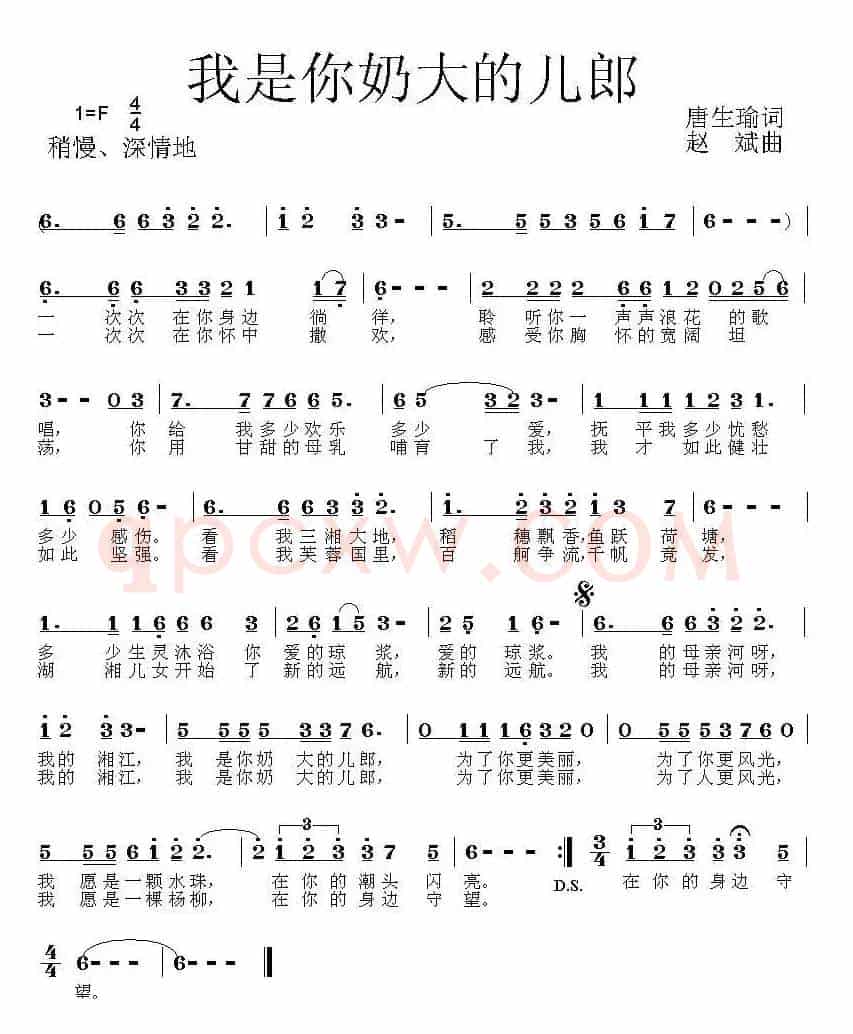 我是你奶大的儿郎
1=F 4/4
唐生瑜词
稍慢、深情地
赵 斌曲
(6. 6 6 3 2 2. | 1 2 3 3- | 5. 5 5 3 5 6 1 7 | 6--- ) |
6. 6 6 3 3 2 1 1 7 | 6--- | 2 2 2 2 6 6 1 2 0 2 5 6 |
一 次次 在你身边 徜 徉, 聆 听你一 声声浪花 的歌
一 次次 在你怀中 撒 欢, 感 受你胸 怀的宽阔 坦
3-- 0 3 | 7. 7 7 6 6 5. | 6 5 3 2 3- | 1 1 1 1 2 3 1. |
唱, 你 给 我多少欢乐 多少 爱, 抚 平我多少忧愁
荡, 你 用 甘甜的母乳 哺育 了我, 我 才 如此健壮
1 6 0 5 6- | 6. 6 6 3 3 2. | 1. 2 3 2 1 6 7 | 6--- |
多少 感伤。看 我三湘大地, 稻 穗飘香,鱼跃 荷 塘,
如此 坚强。看 我芙蓉国里, 百 舸争流,千帆 竞 发,
qpcxw.COM
1. 1 1 6 6 6 3 | 2 6 1 5 3- | 2 5 1 6- | 6. 6 6 3 2 2. |
多 少生灵沐浴 你 爱的琼 浆, 爱的 琼浆。 我 的母亲河呀,
湖 湘儿女开始 了 新的远 航, 新的 远航。 我 的母亲河呀,
1 2 3 3- | 5 5 5 5 3 3 7 6. | 0 1 1 1 6 3 2 0 | 0 5 5 5 3 7 7 0 |
我的 湘江, 我 是你奶 大的儿郎, 为了你更美丽, 为了你更风光,
我的 湘江, 我 是你奶 大的儿郎, 为了你更美丽, 为了人更风光,
5 5 5 6 1 2 2. | 2 1 2 3 3 7 5 | 6--- :| 3/4 1 2 3 3 5 |
我 愿是一颗水珠, 在你的潮头 闪 亮。 D.S. 在你的身边 守
我 愿是一棵杨柳, 在你的身边 守 望。
4/4 6--- | 6--- |
望。